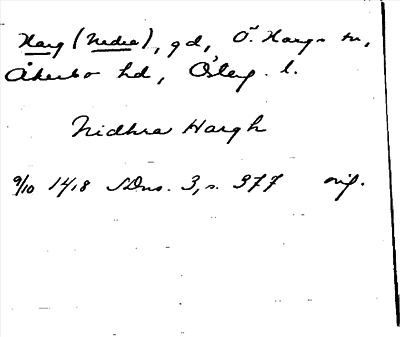 Harg (Nedre), gd, Ö. Hargs sn,
Åkerbo hd, Österg. l.
Nidhra Hargh
9/10 1418 SDns. 3, s. 377 orig.